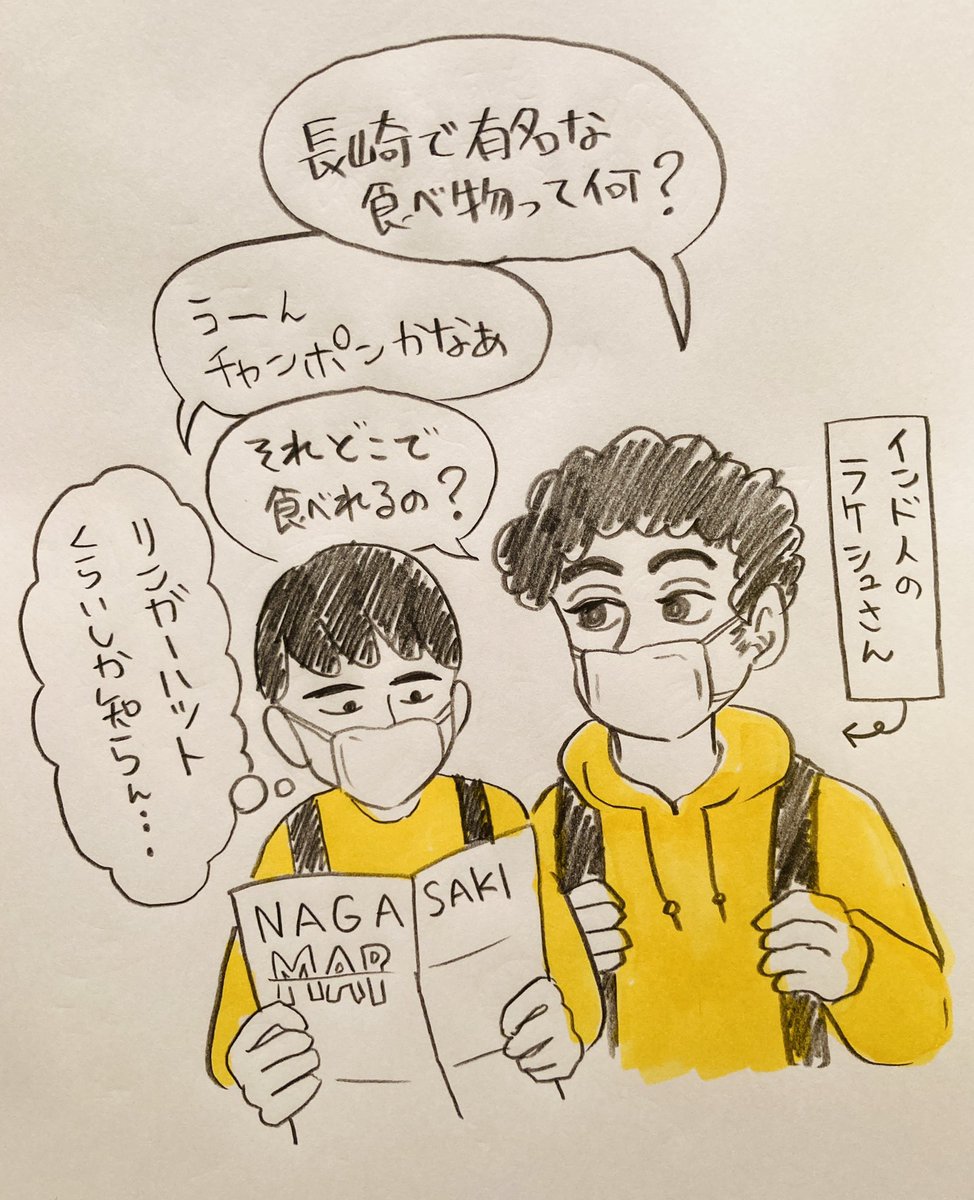 長崎で有名な
食べ物って何?
うーん
チャンポンかなぁ
それどこで
食べれるの?
リンガーハット
くらいしか知らん...
インド人の
ラケシュさん
NAGASAKI
MAP